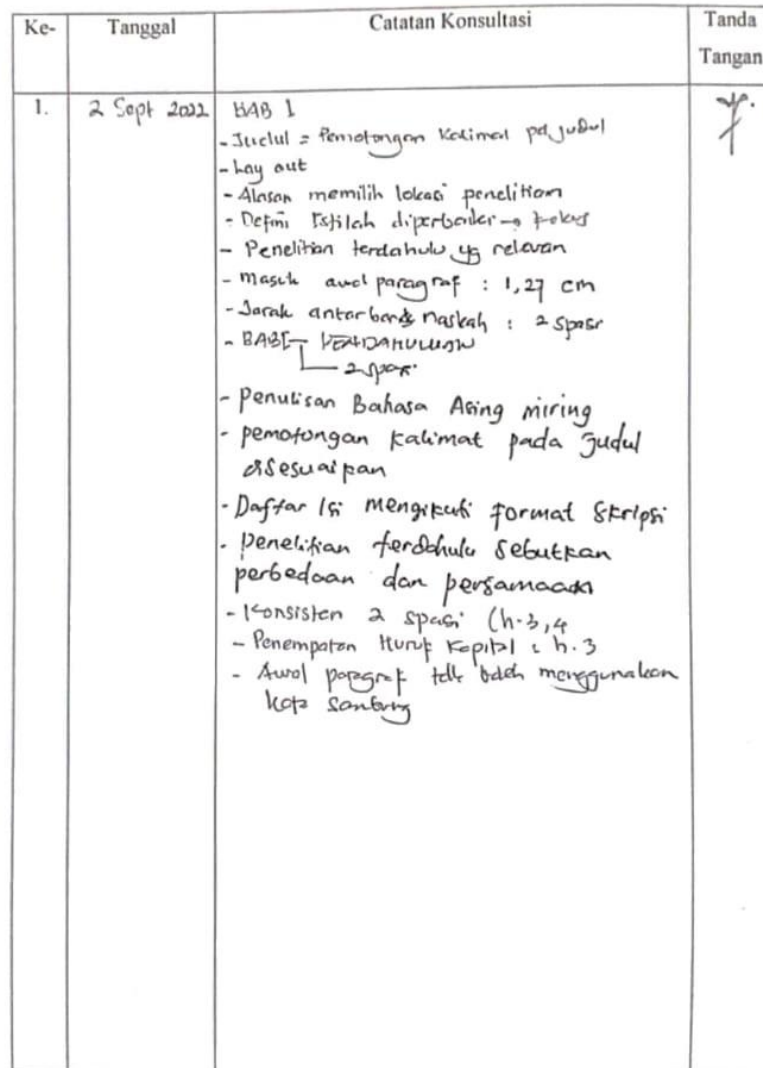 Ke- Tanggal Catatan Konsultasi Tanda
Tangan
1. 2 Sept 2022 BAB I
- Judul = Pemotongan Kalimat pd judul
- Lay out
- Alasan memilih lokasi penelitian
- Defini Istilah diperbaiki → fokus
- Penelitian terdahulu yg relevan
- Masuk awal paragraf : 1,27 cm
- Jarak antar baris naskah : 2 spasi
- BAB I PENDAHULUAN
2 spasi
- Penulisan Bahasa Asing miring
- pemotongan kalimat pada judul
disesuaikan
- Daftar Isi mengikuti format skripsi
- penelitian terdahulu sebutkan
perbedaan dan persamaan
- Konsisten 2 spasi (h.3,4
- Penempatan Huruf Kapital : h.3
- Awal paragraf tdk boleh menggunakan
kata sambung